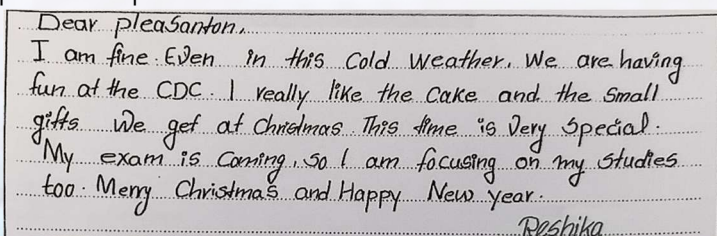 Dear pleasanton,
I am fine. Even in this Cold Weather. We are having
fun at the CDC. I really like the Cake and the Small
gifts We get at Christmas. This time is Very Special.
My exam is Coming, so I am focusing on my studies
too. Merry Christmas and Happy New year.
Reshika